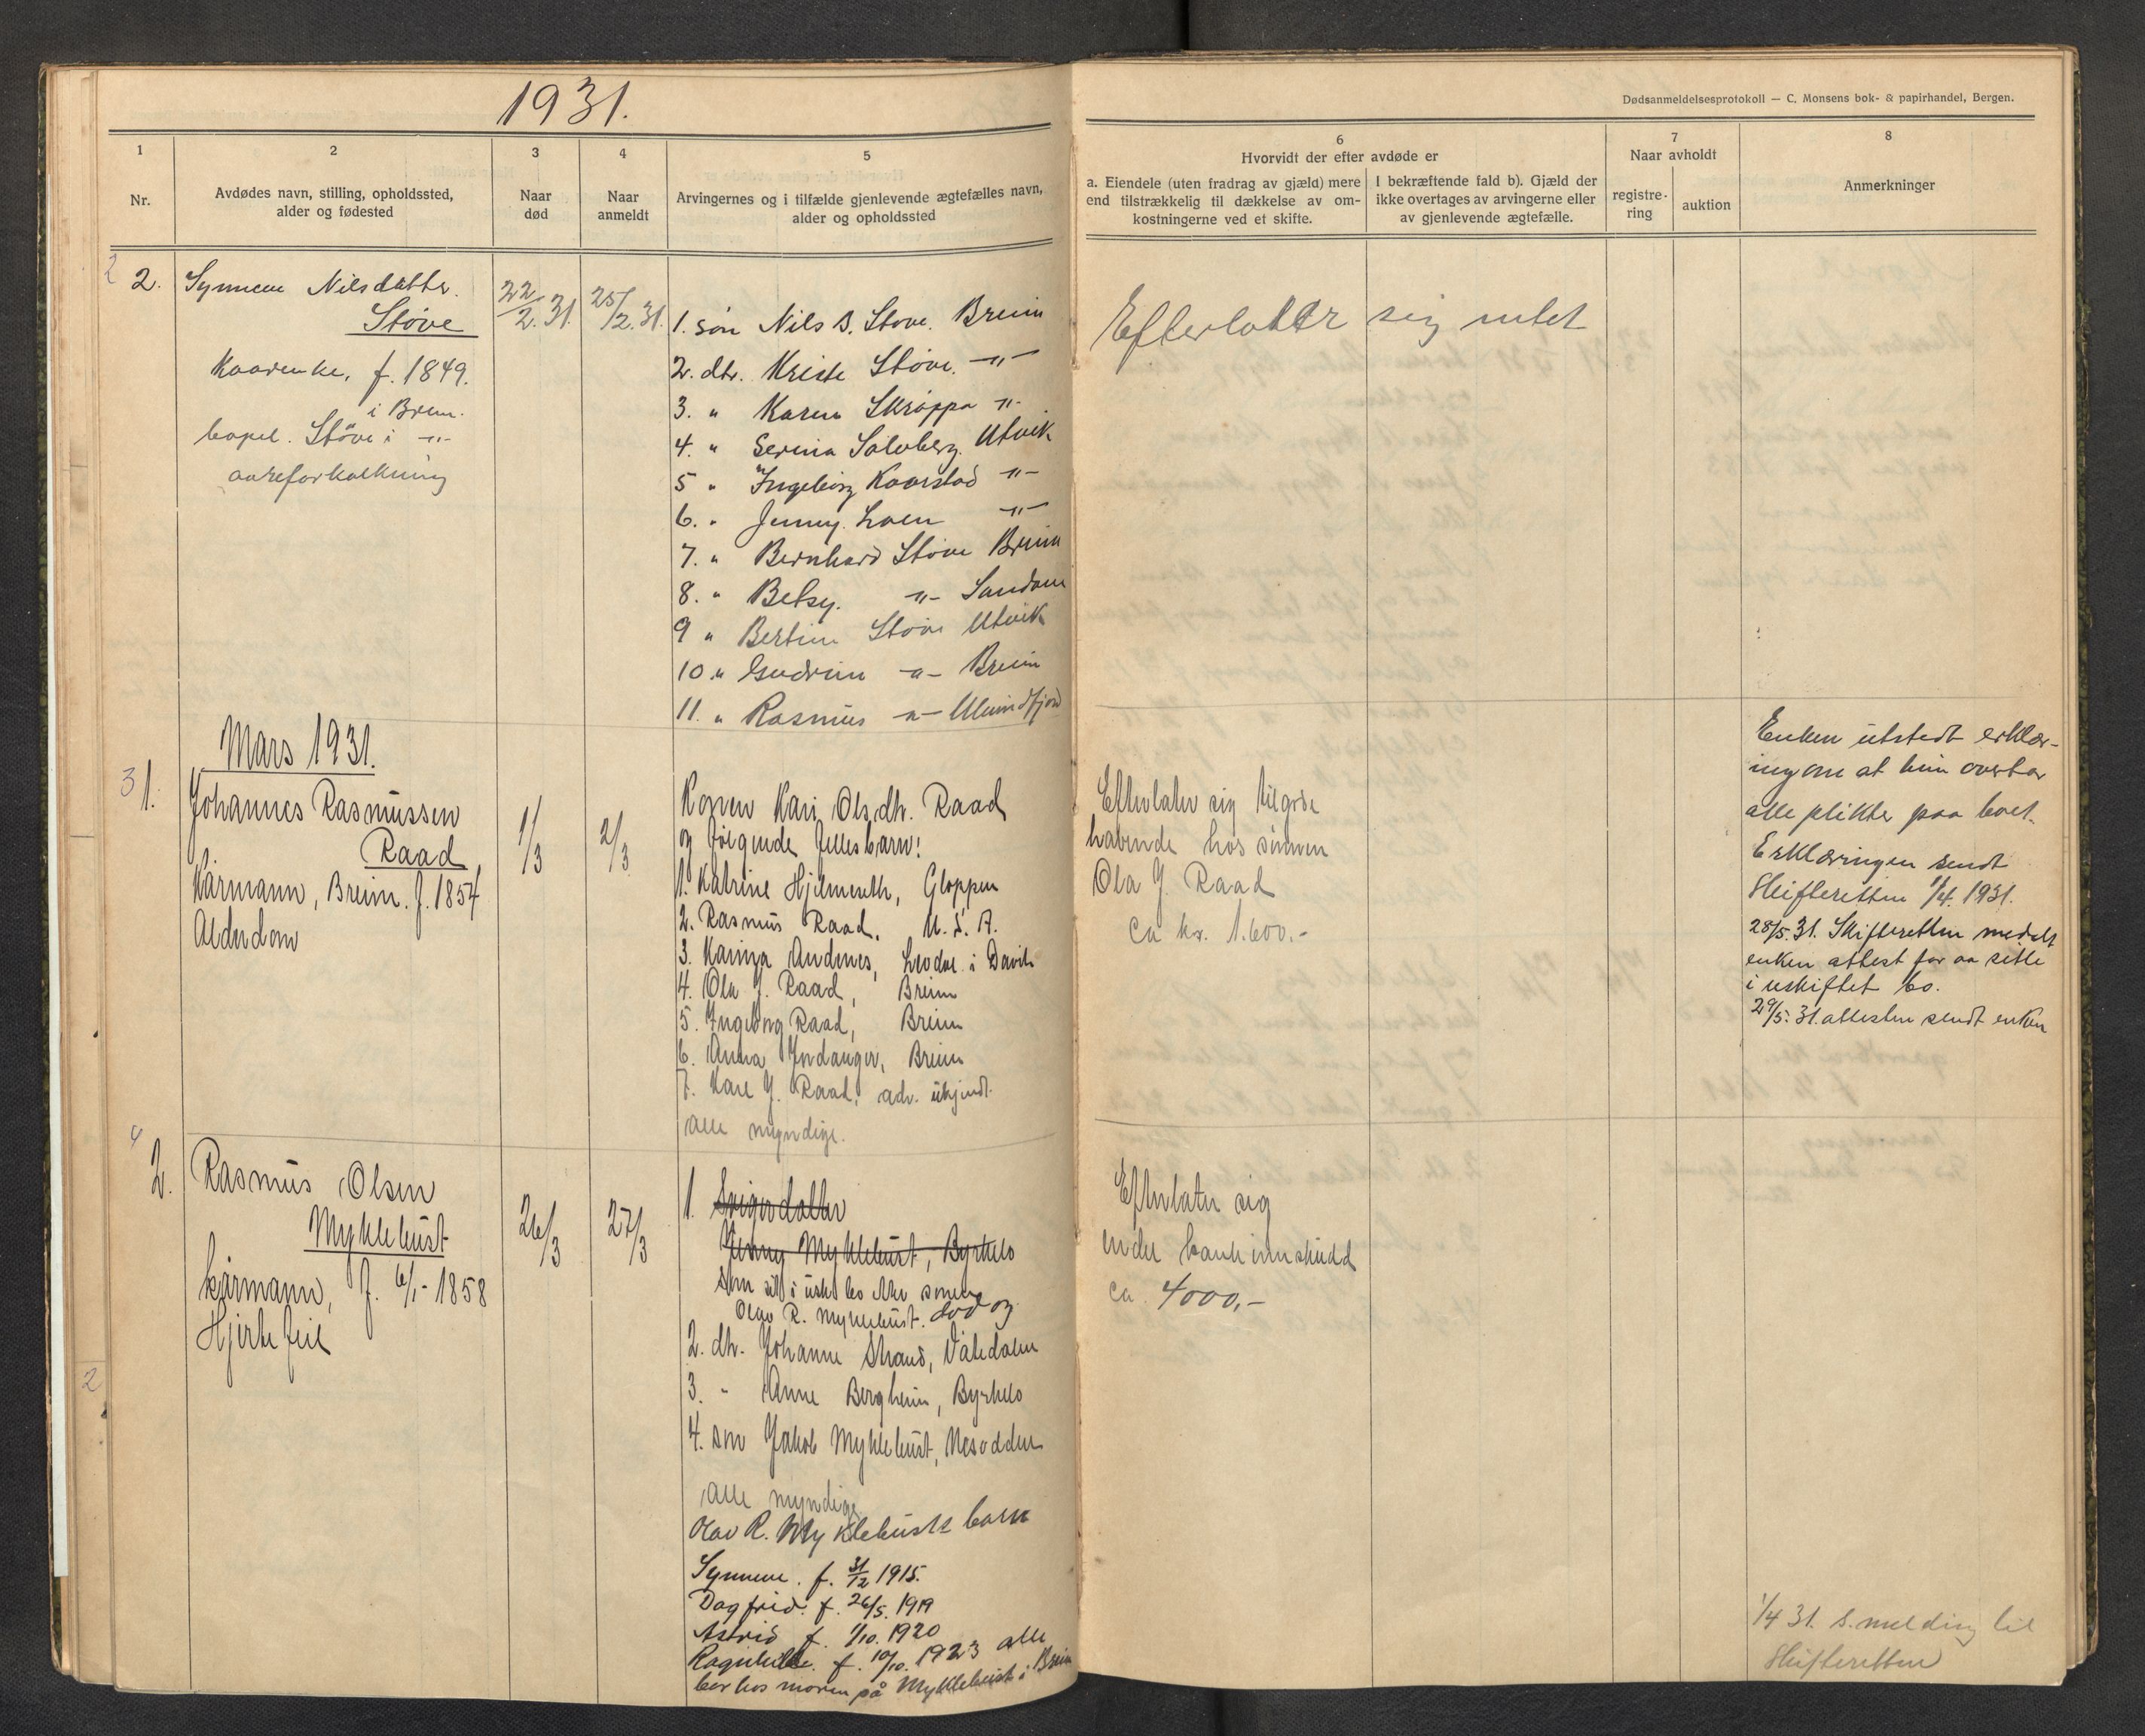 1931.
Dødsanmeldelsesprotokoll — C. Monsens bok- & papirhandel, Bergen.
1
Nr.
2
Avdødes navn, stilling, opholdssted,
alder og fødested
3
Naar
død
4
Naar
anmeldt
5
Arvingernes og i tilfælde gjenlevende ægtefælles navn,
alder og opholdssted
6
Hvorvidt der efter avdøde er
a. Eiendele (uten fradrag av gjæld) mere
end tilstrækkelig til dækkelse av om-
kostningerne ved et skifte.
I bekræftende fald b). Gjæld der
ikke overtages av arvingerne eller
av gjenlevende ægtefælle.
7
Naar avholdt
registre-
ring
auktion
8
Anmerkninger
2
2.
Synneve Nilsdatter.
Støve
Kaarenke, f. 1849.
i Breim.
bopel. Støve i -"-
aareforkalkning
22/2.31.
25/2.31.
1. søn Nils B. Støve. Breim
2. dtr. Kriste Støve. -"-
3. " Karen Skrøppa -"-
4. " Serina Solvberg. Utvik
5 " Ingeborg Kaarstad -"-
6. " Jenny. Loen -"-
7. " Bernhard Støve Breim
8. " Betsy. -"- Sandane
9 " Bertine Støve Utvik
10 " Gudrun -"- Breim
11. " Rasmus -"-
Efterlater sig intet
Mars 1931.
3
1.
Johannes Rasmussen
Raad
Kårmann, Breim. f. 1854
Alderdom
1/3
2/3
Konen Kari Olsdtr. Raad
og følgende fellesbarn:
1. Katrine Hjelmeseth, Gloppen
2. Rasmus Raad, U.S.A.
3. Karina Andenes, i Davik
4. Ola J. Raad, Breim
5. Ingeborg Raad, Breim
6. Anna Indanger, Breim
7. Kare J. Raad, adr. ukjendt.
alle myndige.
Efterlater sig tilgode
havende hos sønnen
Ola J. Raad
ca kr. 1.600.-
Enken utstedt erklær-
ing om at hun overtar
alle plikter paa boet.
Erklæringen sendt
Skifteretten 1/4. 1931.
28/5.31. Skifteretten meddelt
enken attest for aa sitte
i uskiftet bo.
29/5.31. attesten sendt enken
4
2.
Rasmus Olsen
Myklebust
kårmann, f. 6/1-1858
Hjertefeil
26/3
27/3
1. Svigerdatter
Jenny Myklebust, Byrkelo
som sit i usk. bo efter sønnen
Olav R. Myklebust. død og
2. dtr. Johanne Strand, Våtedalen
3. " Anne Bergheim, Byrkelo
4. søn Jakob Myklebust, Nesodden
alle myndige
Olav R. Myklebusts barn
Synneve. f. 31/12 1915.
Dagfrid. f. 26/5. 1919
Astrid f. 1/10. 1920
Ragnhilde. f. 10/10. 1923 alle
bor hos moren på Myklebust i Breim
Efterlater sig
ca. 4000,-
1/4 31. s. melding til
Skifteretten
2